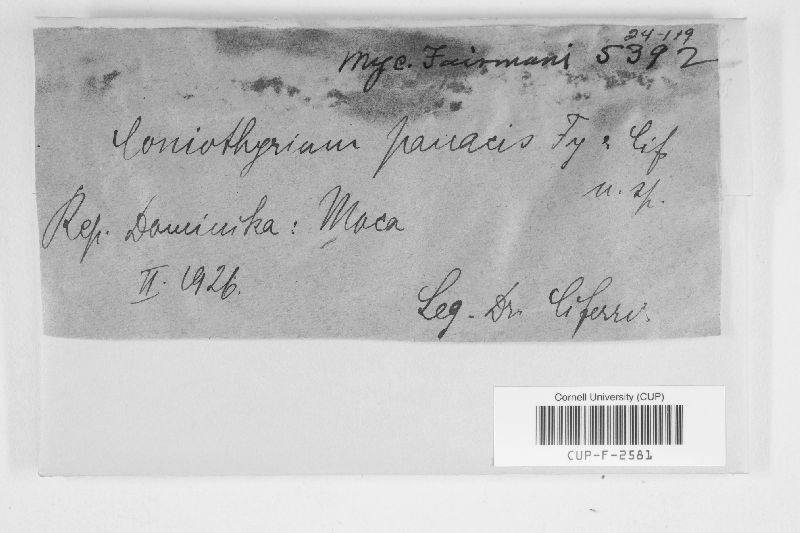 24-119
Myc. Fairmani 5392
Coniothyrium panacis Fy & Cif
n. sp.
Rep. Dominika: Moca
II. 1926.
Leg. Dr. Ciferri.
Cornell University (CUP)
CUP-F-2581